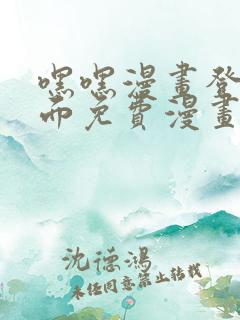 嘿嘿漫畫登
而免費漫畫
沈德鴻
未经同意禁止转载